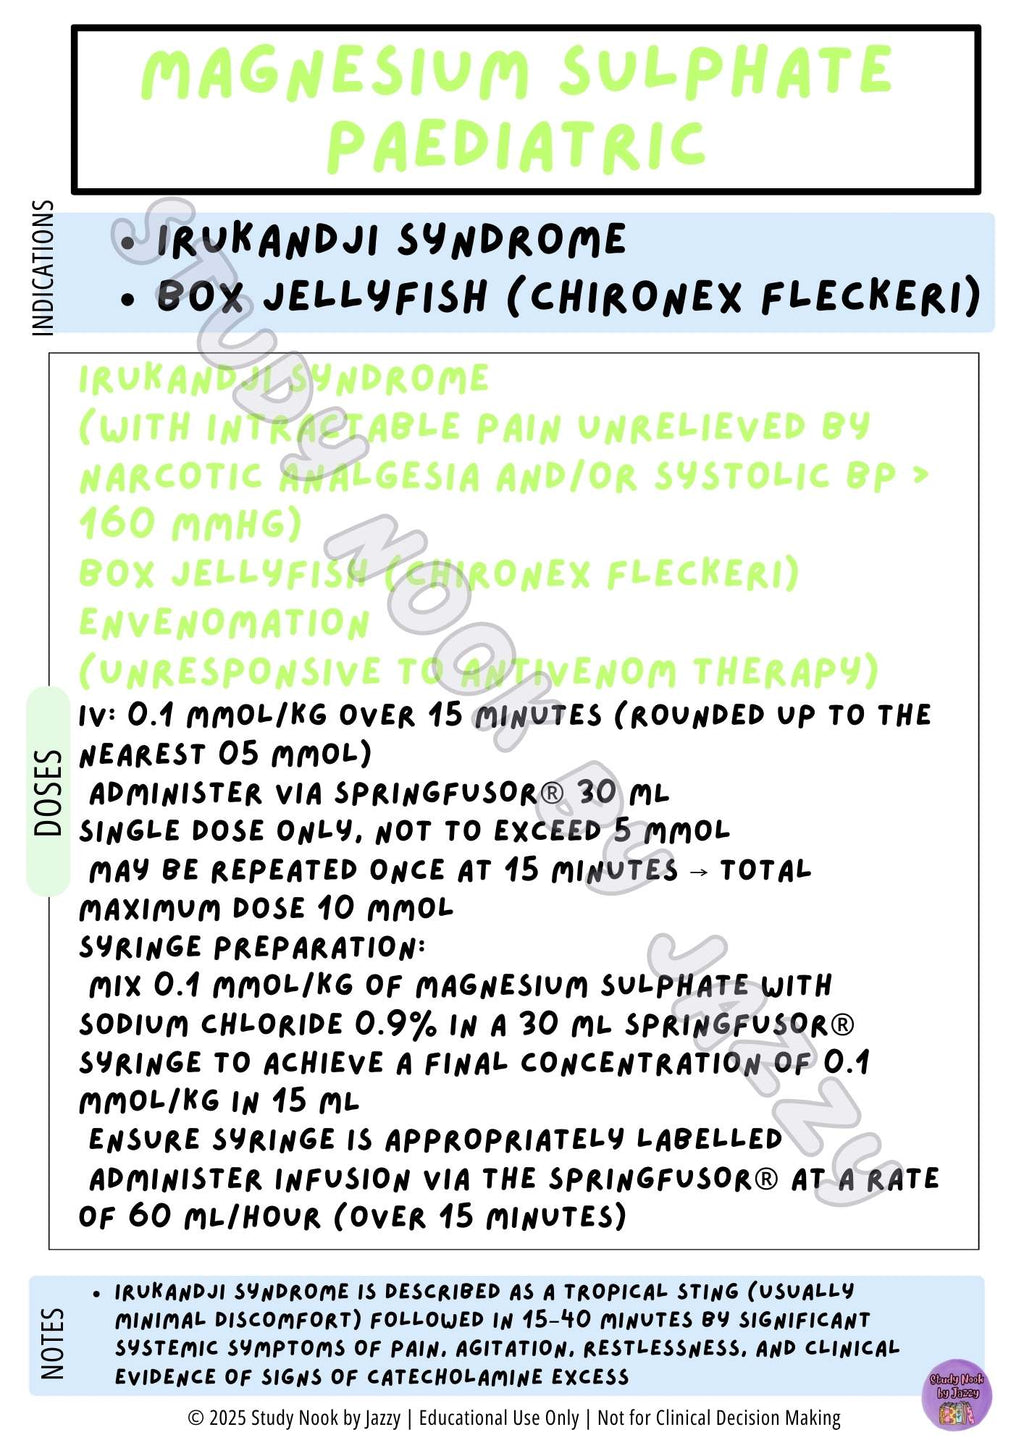 MAGNESIUM SULPHATE
PAEDIATRIC
INDICATIONS
• IRUKANDJI SYNDROME
• BOX JELLYFISH (CHIRONEX FLECKERI)
IRUKANDJI SYNDROME
(WITH INTRACTABLE PAIN UNRELIEVED BY
NARCOTIC ANALGESIA AND/OR SYSTOLIC BP >
160 MMHG)
BOX JELLYFISH (CHIRONEX FLECKERI)
ENVENOMATION
(UNRESPONSIVE TO ANTIVENOM THERAPY)
DOSES
IV: 0.1 MMOL/KG OVER 15 MINUTES (ROUNDED UP TO THE
NEAREST 05 MMOL)
ADMINISTER VIA SPRINGFUSOR® 30 ML
SINGLE DOSE ONLY, NOT TO EXCEED 5 MMOL
MAY BE REPEATED ONCE AT 15 MINUTES → TOTAL
MAXIMUM DOSE 10 MMOL
SYRINGE PREPARATION:
MIX 0.1 MMOL/KG OF MAGNESIUM SULPHATE WITH
SODIUM CHLORIDE 0.9% IN A 30 ML SPRINGFUSOR®
SYRINGE TO ACHIEVE A FINAL CONCENTRATION OF 0.1
MMOL/KG IN 15 ML
ENSURE SYRINGE IS APPROPRIATELY LABELLED
ADMINISTER INFUSION VIA THE SPRINGFUSOR® AT A RATE
OF 60 ML/HOUR (OVER 15 MINUTES)
STUDY NOOK BY JAZZY
NOTES
• IRUKANDJI SYNDROME IS DESCRIBED AS A TROPICAL STING (USUALLY
MINIMAL DISCOMFORT) FOLLOWED IN 15–40 MINUTES BY SIGNIFICANT
SYSTEMIC SYMPTOMS OF PAIN, AGITATION, RESTLESSNESS, AND CLINICAL
EVIDENCE OF SIGNS OF CATECHOLAMINE EXCESS
Study Nook
by Jazzy
© 2025 Study Nook by Jazzy | Educational Use Only | Not for Clinical Decision Making